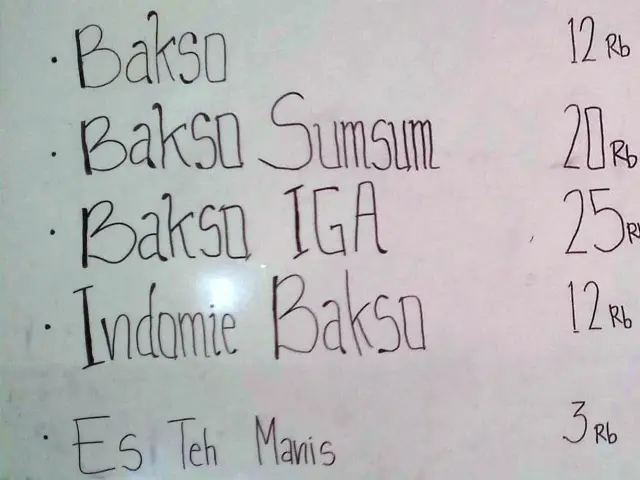 · Bakso 12 Rb
· Bakso Sumsum 20 Rb
· Bakso IGA 25 Rb
· Indomie Bakso 12 Rb
· Es Teh Manis 3 Rb